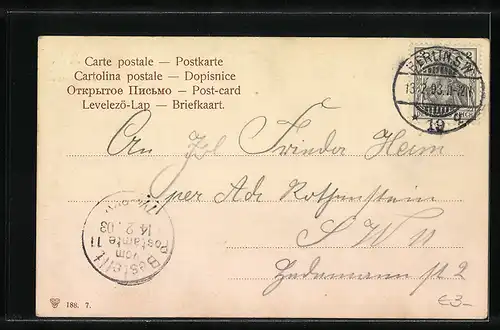 Carte postale — Postkarte
Cartolina postale — Dopisnice
Открытое Письмо — Post-card
Levelező-Lap — Briefkaart.
BERLIN S.W.
13.2.03.
19
Frieda Heim
per Adr Rothenstein
S W 11
Hedemann st 2
Bestellt
vom
Postamte 11
14.2.03
188. 7.
€3-